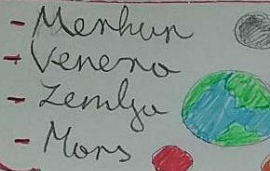 - Merkur
- Venera
- Zemlja
- Mars